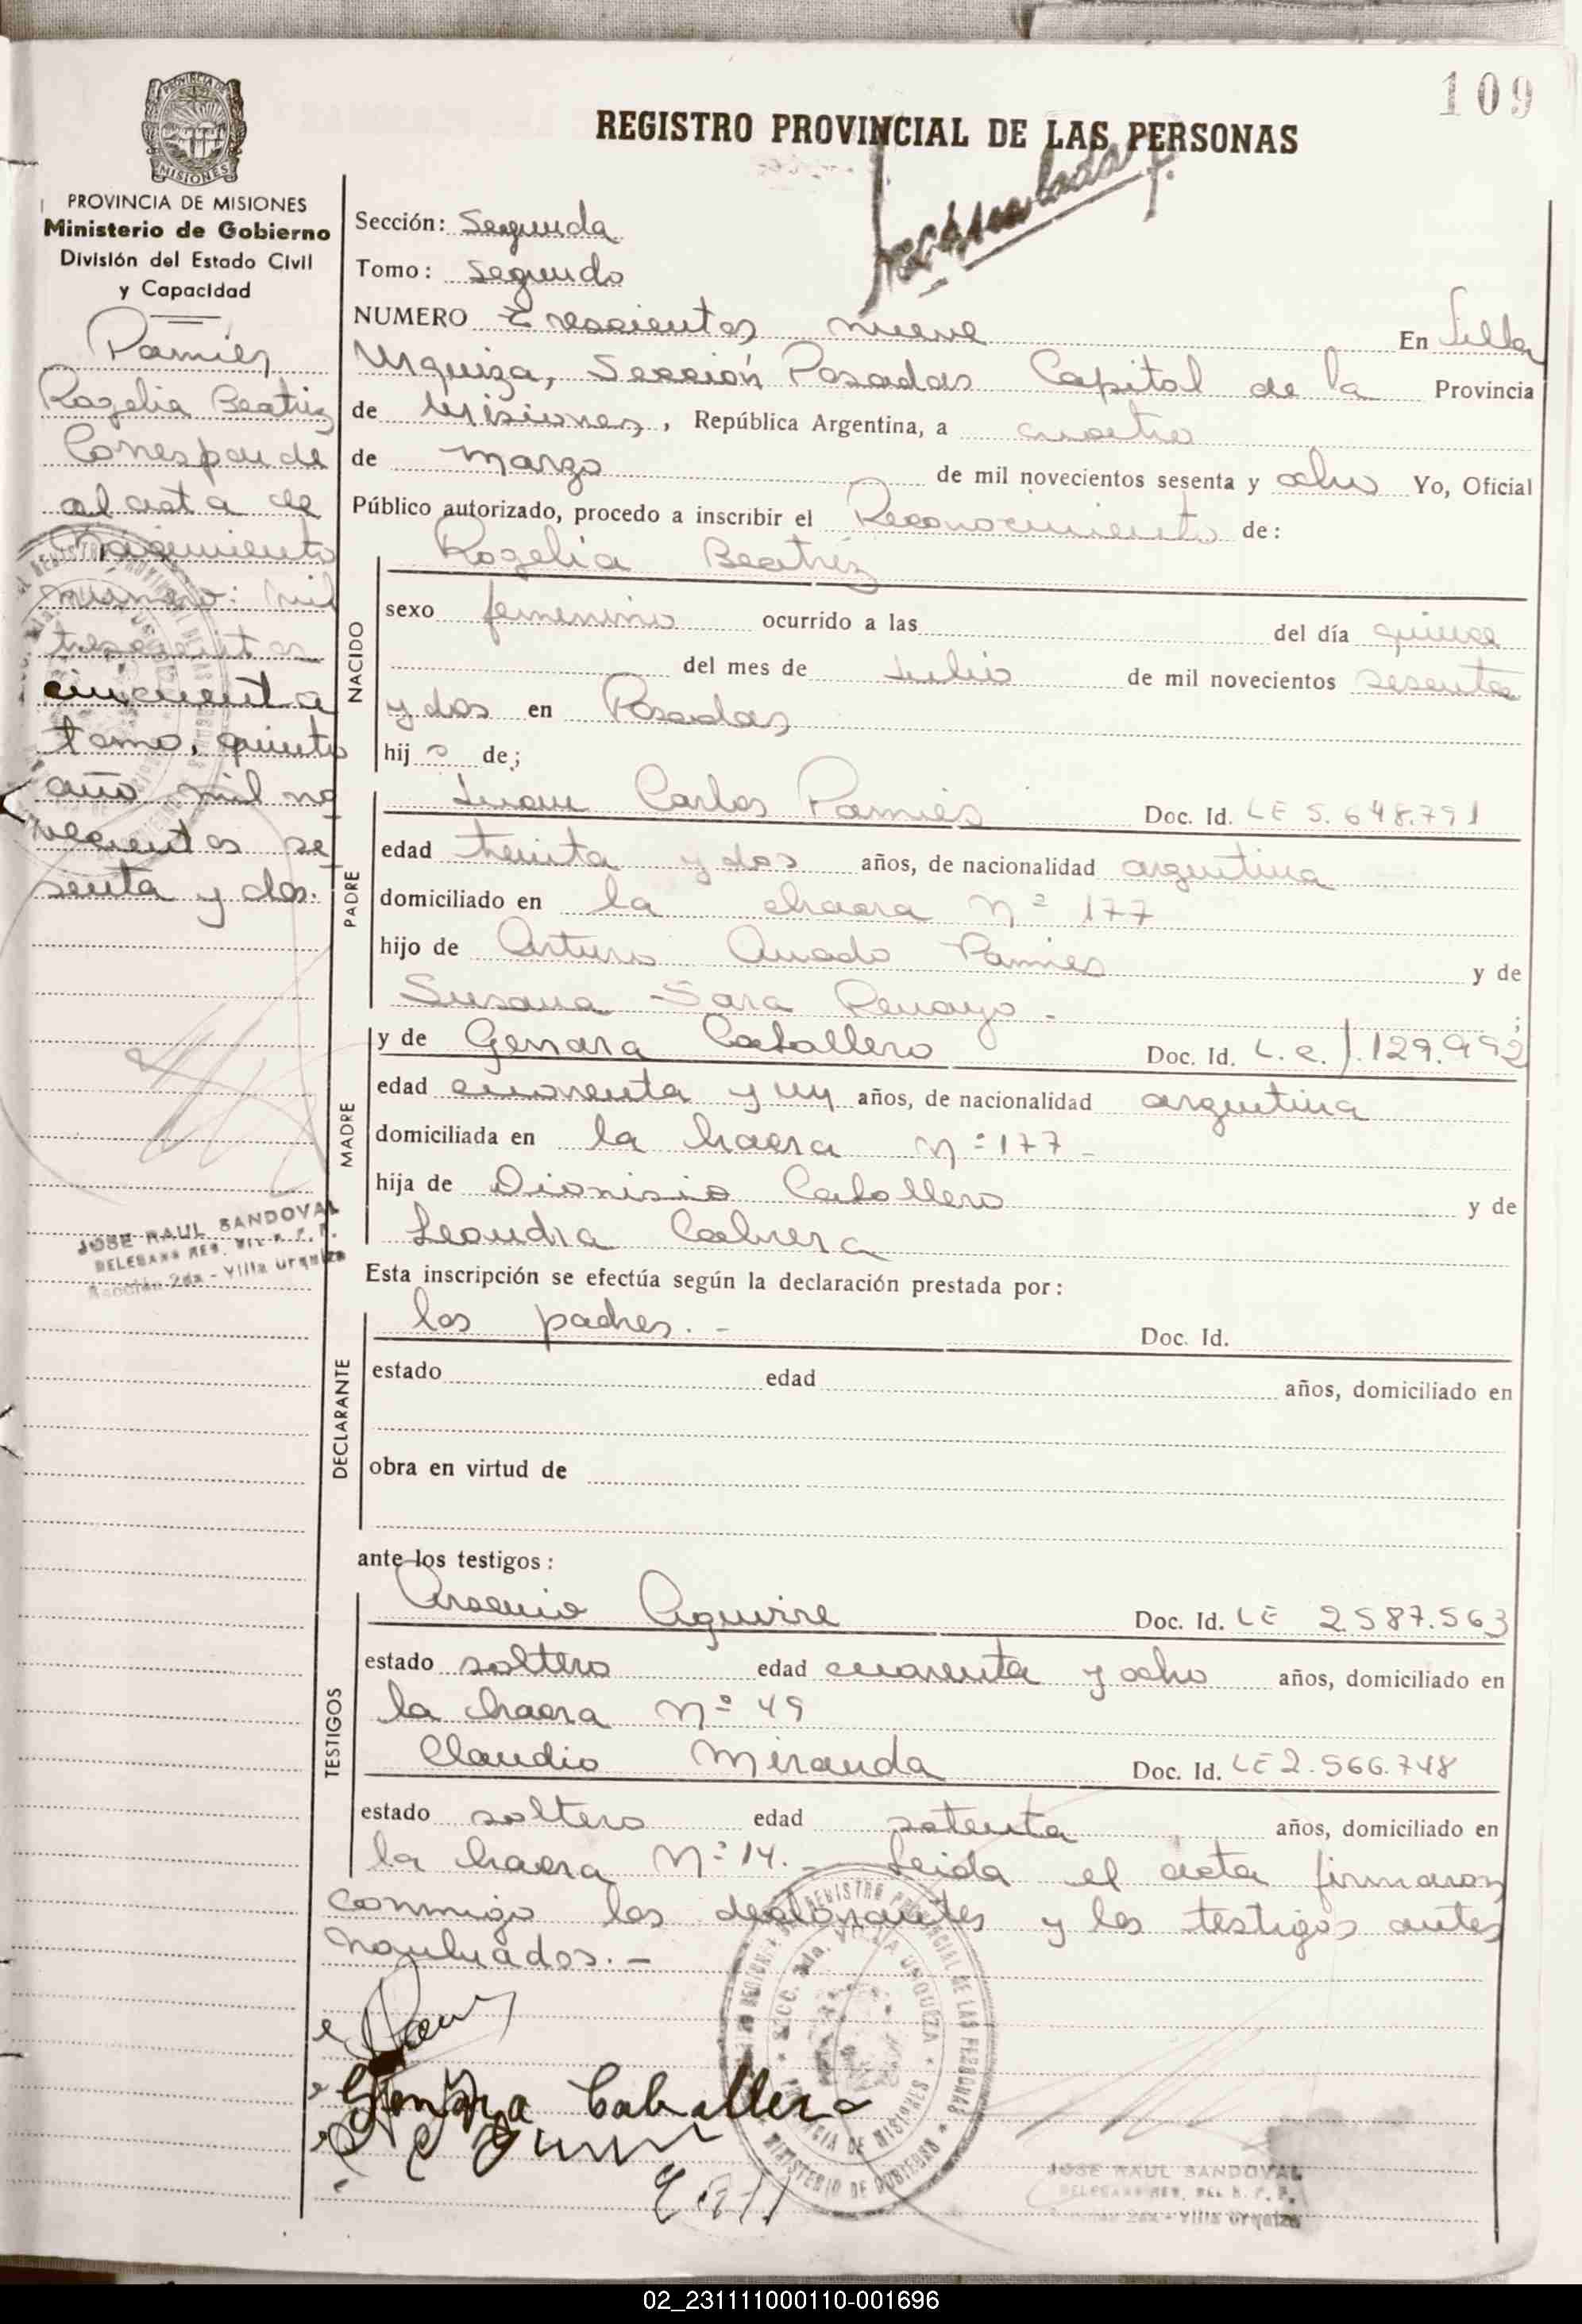 109
REGISTRO PROVINCIAL DE LAS PERSONAS
PROVINCIA DE MISIONES
Ministerio de Gobierno
División del Estado Civil
y Capacidad
Pamies
Rogelia Beatriz
Corresponde
al acta de
nacimiento
número: mil
trescientos
cincuenta
tomo, quinto
año mil no
vecientos se
senta y dos.
JOSE RAUL SANDOVAL
Sección 2da - Villa Urquiza
Sección: Segunda
Tomo: Segundo
NUMERO Trescientos nueve En Villa
Urquiza, Sección Posadas Capital de la Provincia
de Misiones, República Argentina, a cuatro
de marzo de mil novecientos sesenta y ocho Yo, Oficial
Público autorizado, procedo a inscribir el Reconocimiento de:
NACIDO
Rogelia Beatriz
sexo femenino ocurrido a las del día quince
del mes de Julio de mil novecientos sesenta
y dos en Posadas
hija de;
PADRE
Juan Carlos Pamies Doc. Id. LE 5.648.791
edad treinta y dos años, de nacionalidad argentina
domiciliado en la chacra Nº 177
hijo de Arturo Amado Pamies y de
Susana Sara
MADRE
y de Genara Caballero Doc. Id. L.C. 1.129.992
edad cuarenta y un años, de nacionalidad argentina
domiciliada en la hacra Nº 177-
hija de Dionisio Caballero y de
Leandra Cabrera
Esta inscripción se efectúa según la declaración prestada por:
DECLARANTE
los padres.- Doc. Id.
estado edad años, domiciliado en
obra en virtud de
ante los testigos:
TESTIGOS
Arsenio Aguirre Doc. Id. LE 2.587.563
estado soltero edad cuarenta y ocho años, domiciliado en
la hacra Nº 49
Claudio Miranda Doc. Id. LE 2.566.748
estado soltero edad setenta años, domiciliado en
la hacra Nº 14.- Leida el acta firmaron
conmigo los declarantes y los testigos antes
nombrados.-
Genara Caballero
REGISTRO PROVINCIAL DE LAS PERSONAS
SECC. 2da. VILLA URQUIZA
PROVINCIA DE MISIONES
MINISTERIO DE GOBIERNO
JOSE RAUL SANDOVAL
Sección 2da - Villa Urquiza
02_231111000110-001696